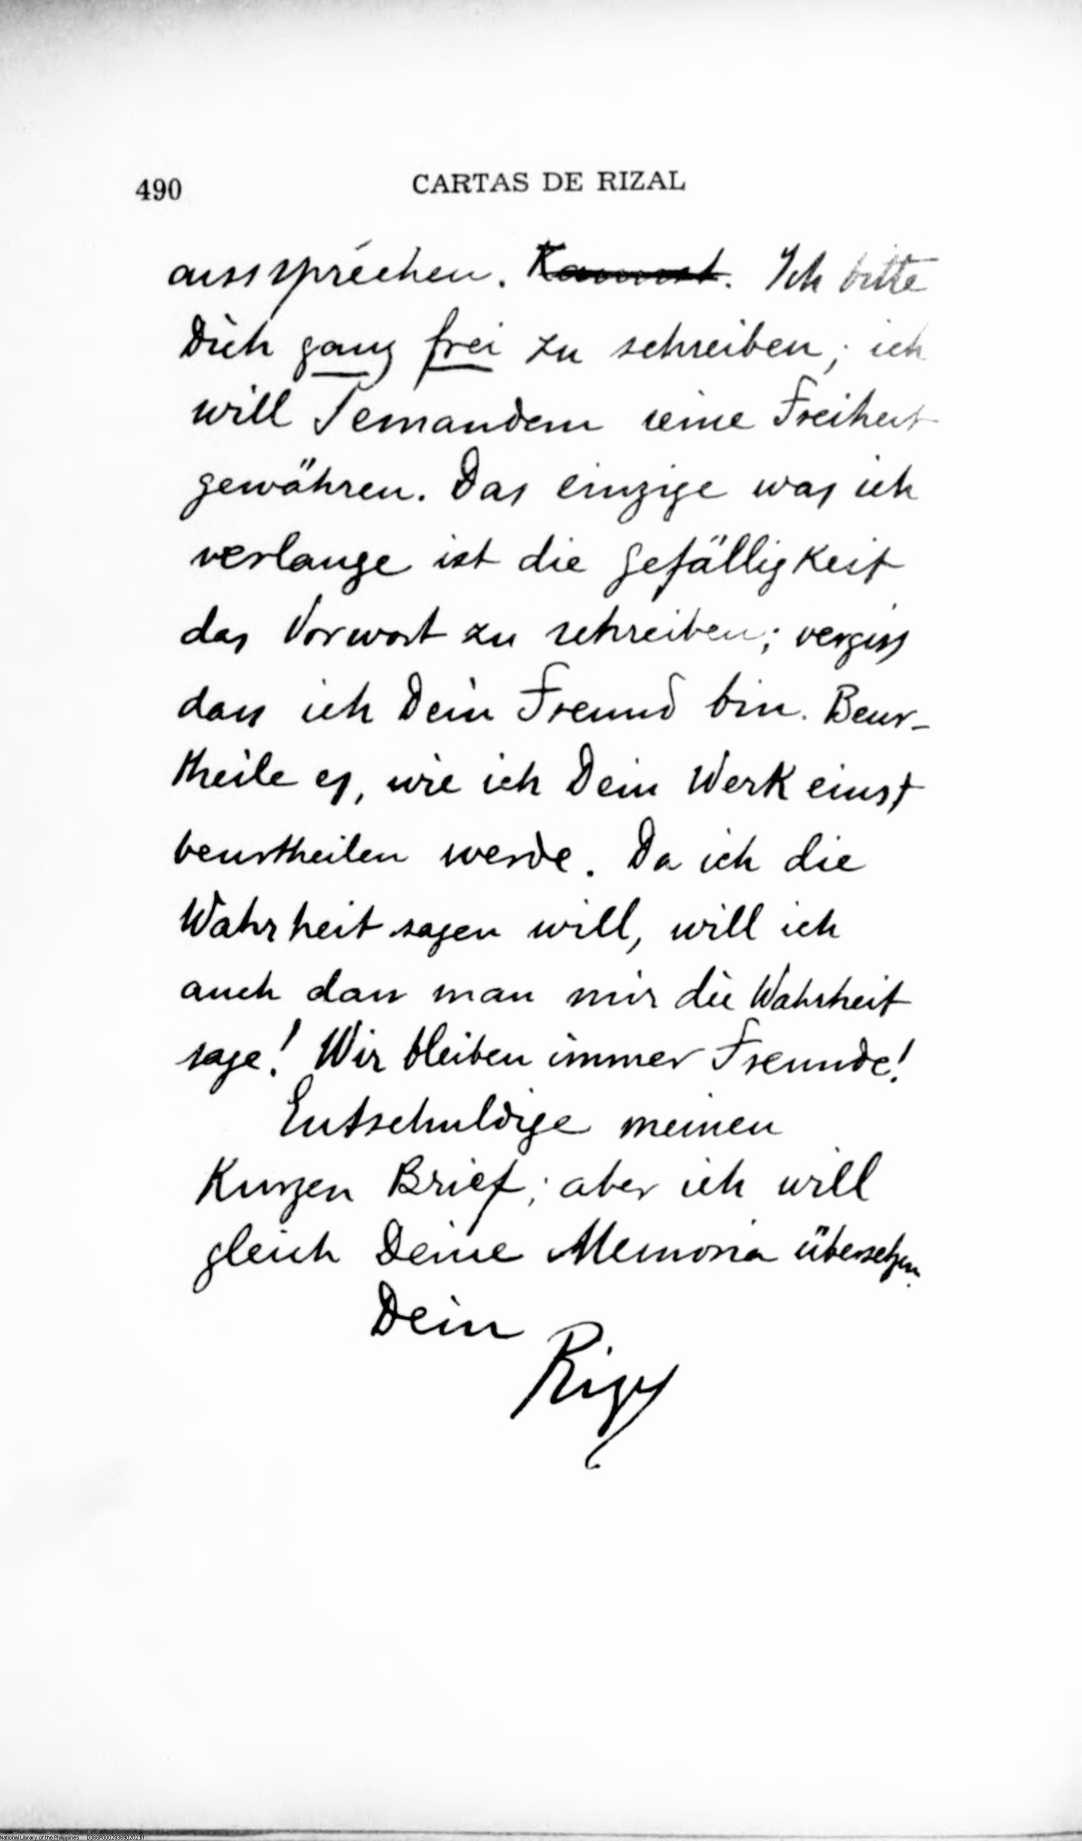 490 CARTAS DE RIZAL
aussprechen. Ich bitte
Dich ganz frei zu schreiben; ich
will Jemandem seine Freiheit
gewähren. Das einzige was ich
verlange ist die Gefälligkeit
das Vorwort zu schreiben; vergiss
dass ich Dein Freund bin. Beur-
theile es, wie ich Dein Werk einst
beurtheilen werde. Da ich die
Wahrheit sagen will, will ich
auch dass man mir die Wahrheit
sage! Wir bleiben immer Freunde!
Entschuldige meinen
Kurzen Brief; aber ich will
gleich Deine Memoria übersetzen.
Dein
National Library of the Philippines